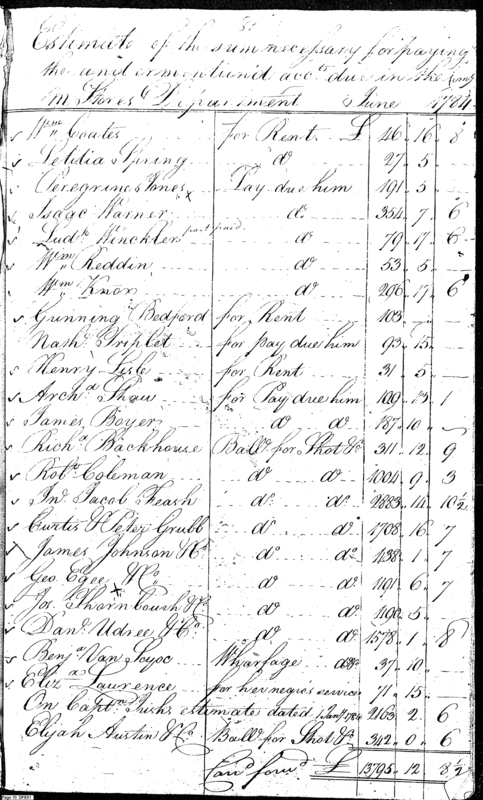 Estimate of the sum necessary for paying
the undermentioned accts. due in the Comy
M Stores Department June 1784
Wm Coates for Rent £ 46 16 8
Letitia Spring do 27 5
Peregrine Jones Pay due him 191 5
Isaac Warner do 354 7 6
Ludk. Winckler part paid do 79 17 6
Wm Reddin do 53 5
Wm Knox do 296 17 6
Gunning Bedford for Rent 103
Nash. Triplet for pay due him 93 15
Henry Lisle for Rent 31 5
Archd. Shaw for Pay due him 109 13 1
James Boyer do do 187 10
Richd. Backhouse Ball. for Shot &c 311 12 9
Robt. Coleman do do 1004 9 3
Jno. Jacob Feash do do 2883 14 10½
Curtis & Peter Grubb do do 1708 16 7
James Johnson & Co do do 1138 1 7
Geo. Egee & Co do do 1191 6 7
Jos. Thornbough & Co do do 1190 5
Danl. Udree & Co do do 1578 1 8
Benja. Van Loyoc Wharfage do 37 10
Eliza. Laurence for her negros service 71 15
On Captn. Rush's estimate dated 1 Jany 1784 2163 2 6
Elijah Austin & Co Ball. for Shot &c 342 0 6
Card. forwd. £ 13795 12 8½